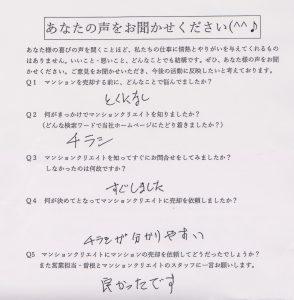 あなたの声をお聞かせください(^^♪
あなた様の喜びの声を聞くことほど、私たちの仕事に情熱とやりがいを与えてくれるもの
はありません。いいこと・悪いこと、どんなことでも結構です。ぜひ、あなた様の声をお聞
かせください。ご意見をお聞かせいただき、今後の活動に反映したいと考えております。
Q１　マンションを売却する前に、どんなことで悩んでましたか？
とくになし
Q２　何がきっかけでマンションクリエイトを知りましたか？
（どんな検索ワードで当社ホームページにたどり着きましたか？）
チラシ
Q３　マンションクリエイトを知ってすぐにお問合せをしてみましたか？
しなかったのは何故ですか？
すぐしました
Q４　何が決めてとなってマンションクリエイトに売却を依頼しましたか？
チラシが分かりやすい
Q5　マンションクリエイトにマンションの売却を依頼してどうだったでしょうか？
また営業担当・曽根とマンションクリエイトのスタッフに一言お願いします。
良かったです